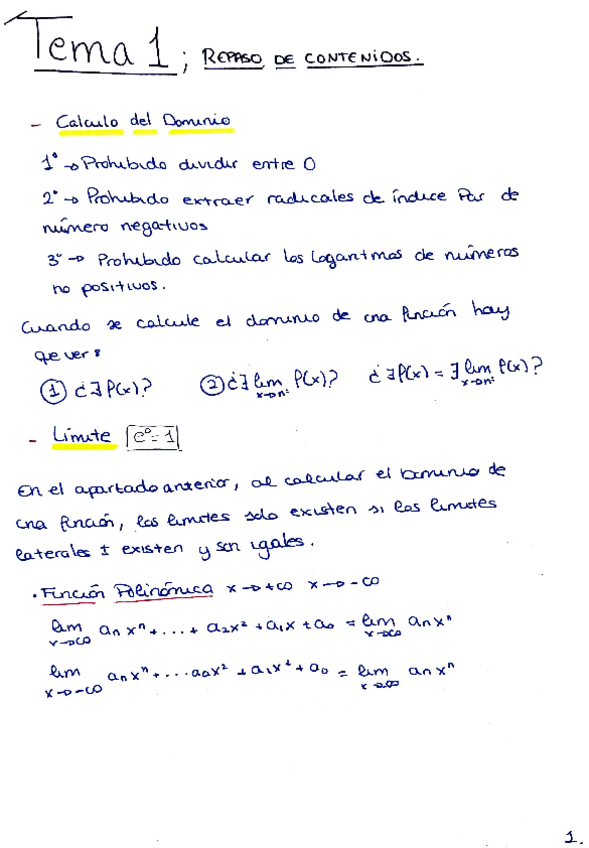 Tema 1; REPASO DE CONTENIDOS.
- Calculo del Dominio
1º → Prohibido dividir entre 0
2º → Prohibido extraer radicales de índice Par de
número negativos
3º → Prohibido calcular los logaritmos de números
no positivos.
Cuando se calcule el dominio de una función hay
que ver:
① ¿∃ f(x)? ② ¿∃ lim x→nº f(x)? ¿∃ f(x) = ∃ lim x→nº f(x)?
- Límite e⁰=1
En el apartado anterior, al calcular el Dominio de
una función, los limites solo existen si los limites
laterales ± existen y son igales.
· Función Polinómica x→+∞ x→-∞
lim x→∞ aₙxⁿ+...+a₂x²+a₁x+a₀ = lim x→∞ aₙxⁿ
lim x→-∞ aₙxⁿ+...a₀x²+a₁x¹+a₀ = lim x→∞ aₙxⁿ
1.